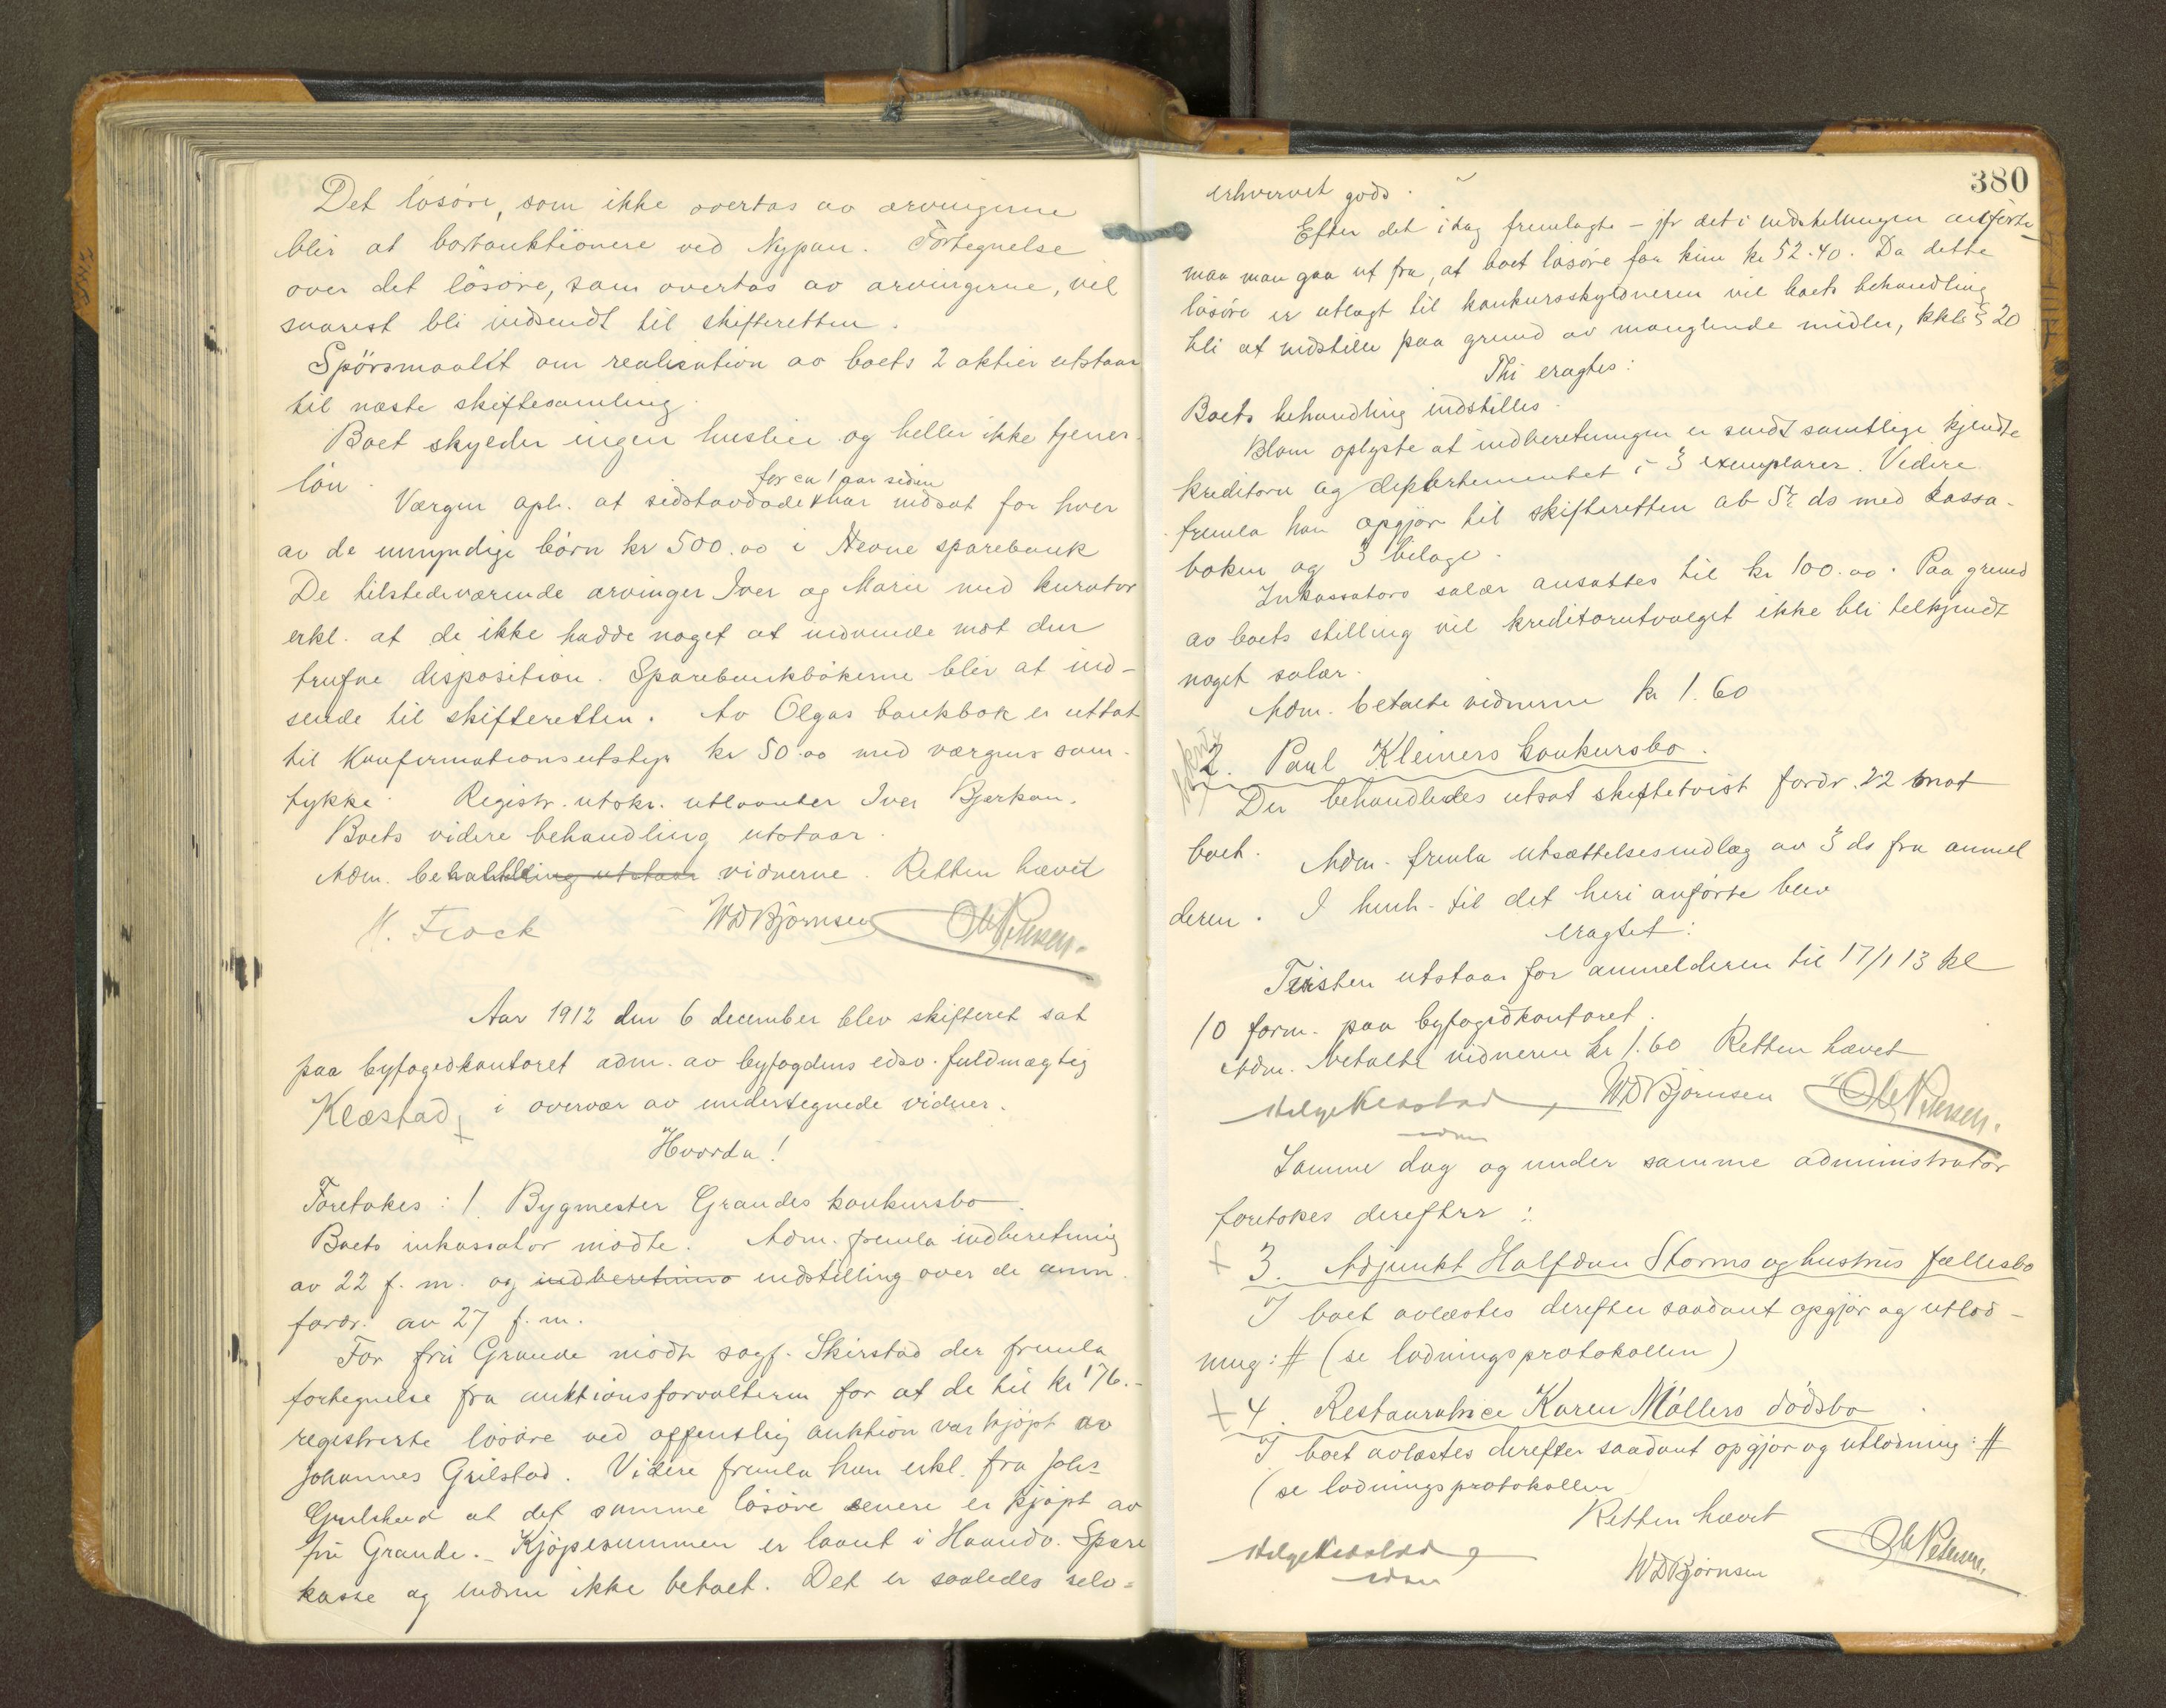 Det lösöre, som ikke overtas av arvingerne
blir at bortauktionere ved Nypan. Fortegnelse
over det lösöre, som overtas av arvingerne, vil
snarest bli indsendt til skifteretten.
Spörsmaalet om realisation av boets 2 aktier utstaar
til næste skiftesamling.
Boet skylder ingen husleie og heller ikke tjener-
lön.
for ca 1 aar siden
Værgen opl. at sidstavdöde har indsat for hver
av de umyndige börn kr 500.00 i Hevne sparebank
De tilstedeværende arvinger Iver og Marie med kurator
erkl. at de ikke hadde noget at indvende mot den
trufne disposition. Sparebankbökerne blir at ind-
sende til skifteretten. Av Olgas bankbok er uttat
til Konfirmationsutstyr kr 50.00 med værgens sam-
tykke. Registr. utskr. utlaantes Iver Bjerkan.
Boets videre behandling utstaar.
Adm. behandling utstaar vidnerne. Retten hævet
WDBjörnsen Ole Petersen.
Aar 1912 den 6 december blev skifteret sat
paa byfogedkontoret adm. av byfogdens edsv. fuldmægtig
Klæstad, i overvær av undertegnede vidner.
Hvorda!
Foretokes: 1. Bygmester Grandes konkursbo.
Boets inkassator mödte. Adm. fremla indberetning
av 22 f. m. og indberetning indstilling over de anm.
fordr. av 27 f. m.
For fru Grande mödte sagf. Skirstad der fremla
fortegnelse fra auktionsforvalteren for at de til kr 176.-
registrerte lösöre ved offentlig auktion var kjöpt av
Johannes Grilstad. Videre fremla han erkl. fra Johs
Grilstad at det samme lösöre senere er kjöpt av
fru Grande. Kjöpesummen er laant i Haandv. Spare
kasse og endnu ikke betalt. Det er saaledes selv-
380
erhvervet gods.
Efter det idag fremlagte - jfr det i indstillingen anförte -
maa man gaa ut fra, at boet lösöre for kun kr 52.40. Da dette
lösöre er utlagt til konkursskyldneren vil boets behandling
bli at indstille paa grund av manglende midler, kkl § 20.
Thi eragtes:
Boets behandling indstilles.
Blom oplyste at indberetningen er sendt samtlige kjendte
kreditorer og departementet i 3 exemplarer. Videre
fremla han opgjör til skifteretten av 5te ds med kassa-
boken og 3 bilage.
Inkassators salær ansattes til kr 100.00. Paa grund
av boets stilling vil kreditorutvalget ikke bli tilkjendt
noget salær.
Adm. betalte vidnerne kr 1.60
2. Paul Kleiners konkursbo.
Der behandledes utsat skiftetvist fordr. 22 mot
boet.
Adm. fremla utsættelsesindlæg av 3 ds fra anmel
deren. I henh. til det heri anförte blev
eragtet:
Tvisten utstaar for anmelderen til 17/1 13 kl
10 form. paa byfogedkontoret.
Adm. betalte vidnerne kr 1.60 Retten hævet
Helge Klæstad, WDBjörnsen Ole Petersen.
edsv
Samme dag og under samme administrator
foretokes derefter:
3. Adjunkt Halfdan Storms og hustrus fællesbo
I boet avlæstes derefter saadant opgjör og utlod-
ning: # (se lodningsprotokollen)
4. Restauratrice Karen Möllers dödsbo.
I boet avlæstes derefter saadant opgjör og utlodning: #
(se lodningsprotokollen
Retten hævet
Helge Klæstad, WDBjörnsen Ole Petersen.
edsv